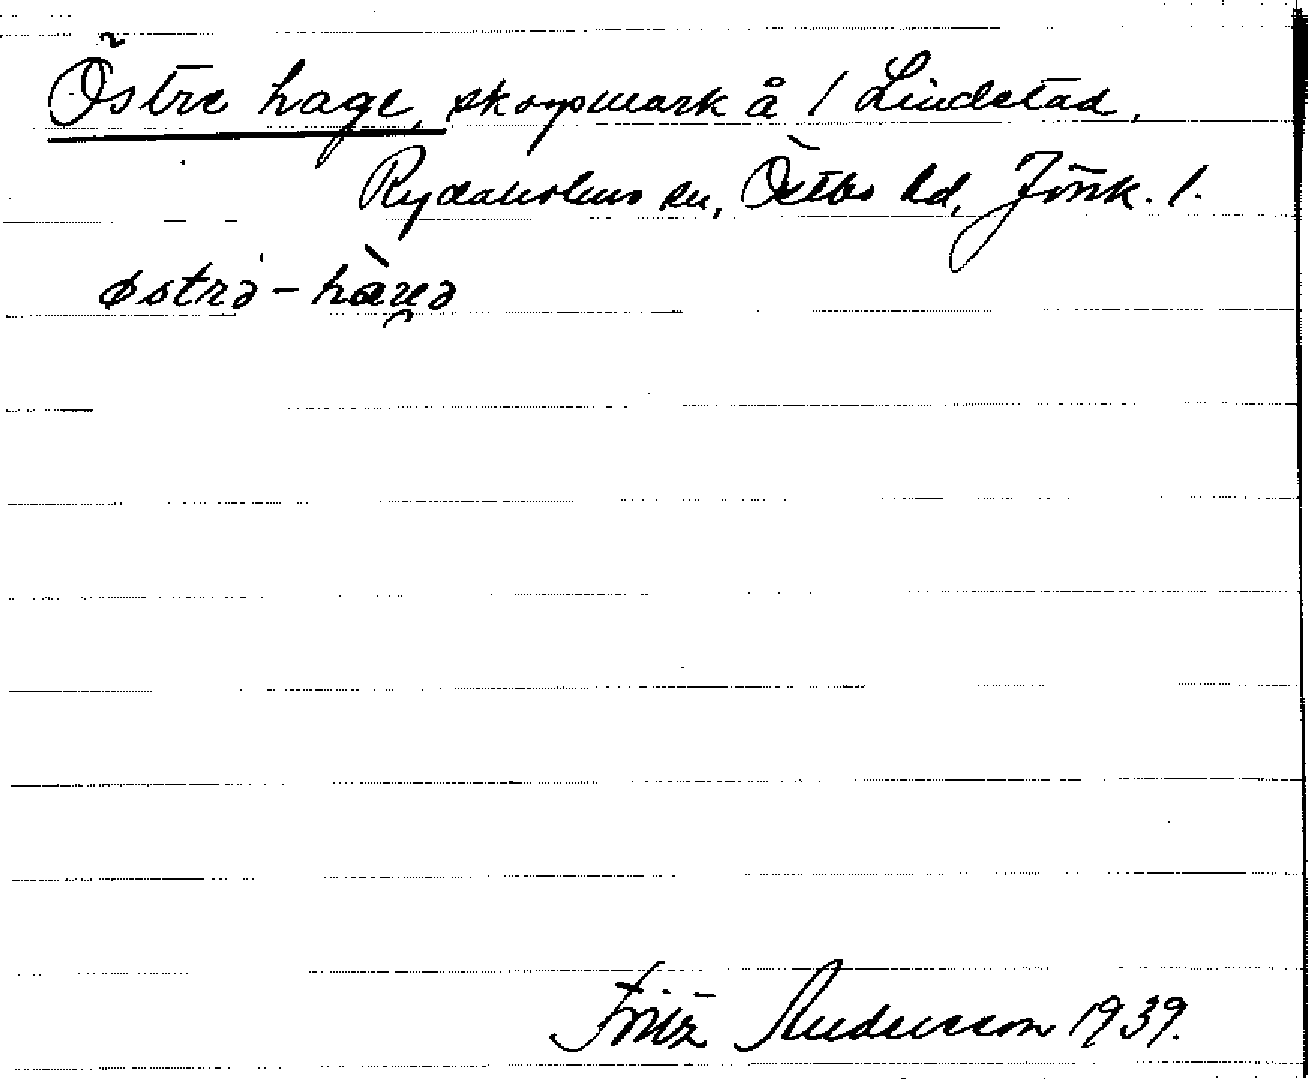 Östre hage, skogsmark å 1 Lindstad,
Rydaholms sn, Östbo hd, Jönk. l.
østrə-hàgə
Fritz Andersson 1939.